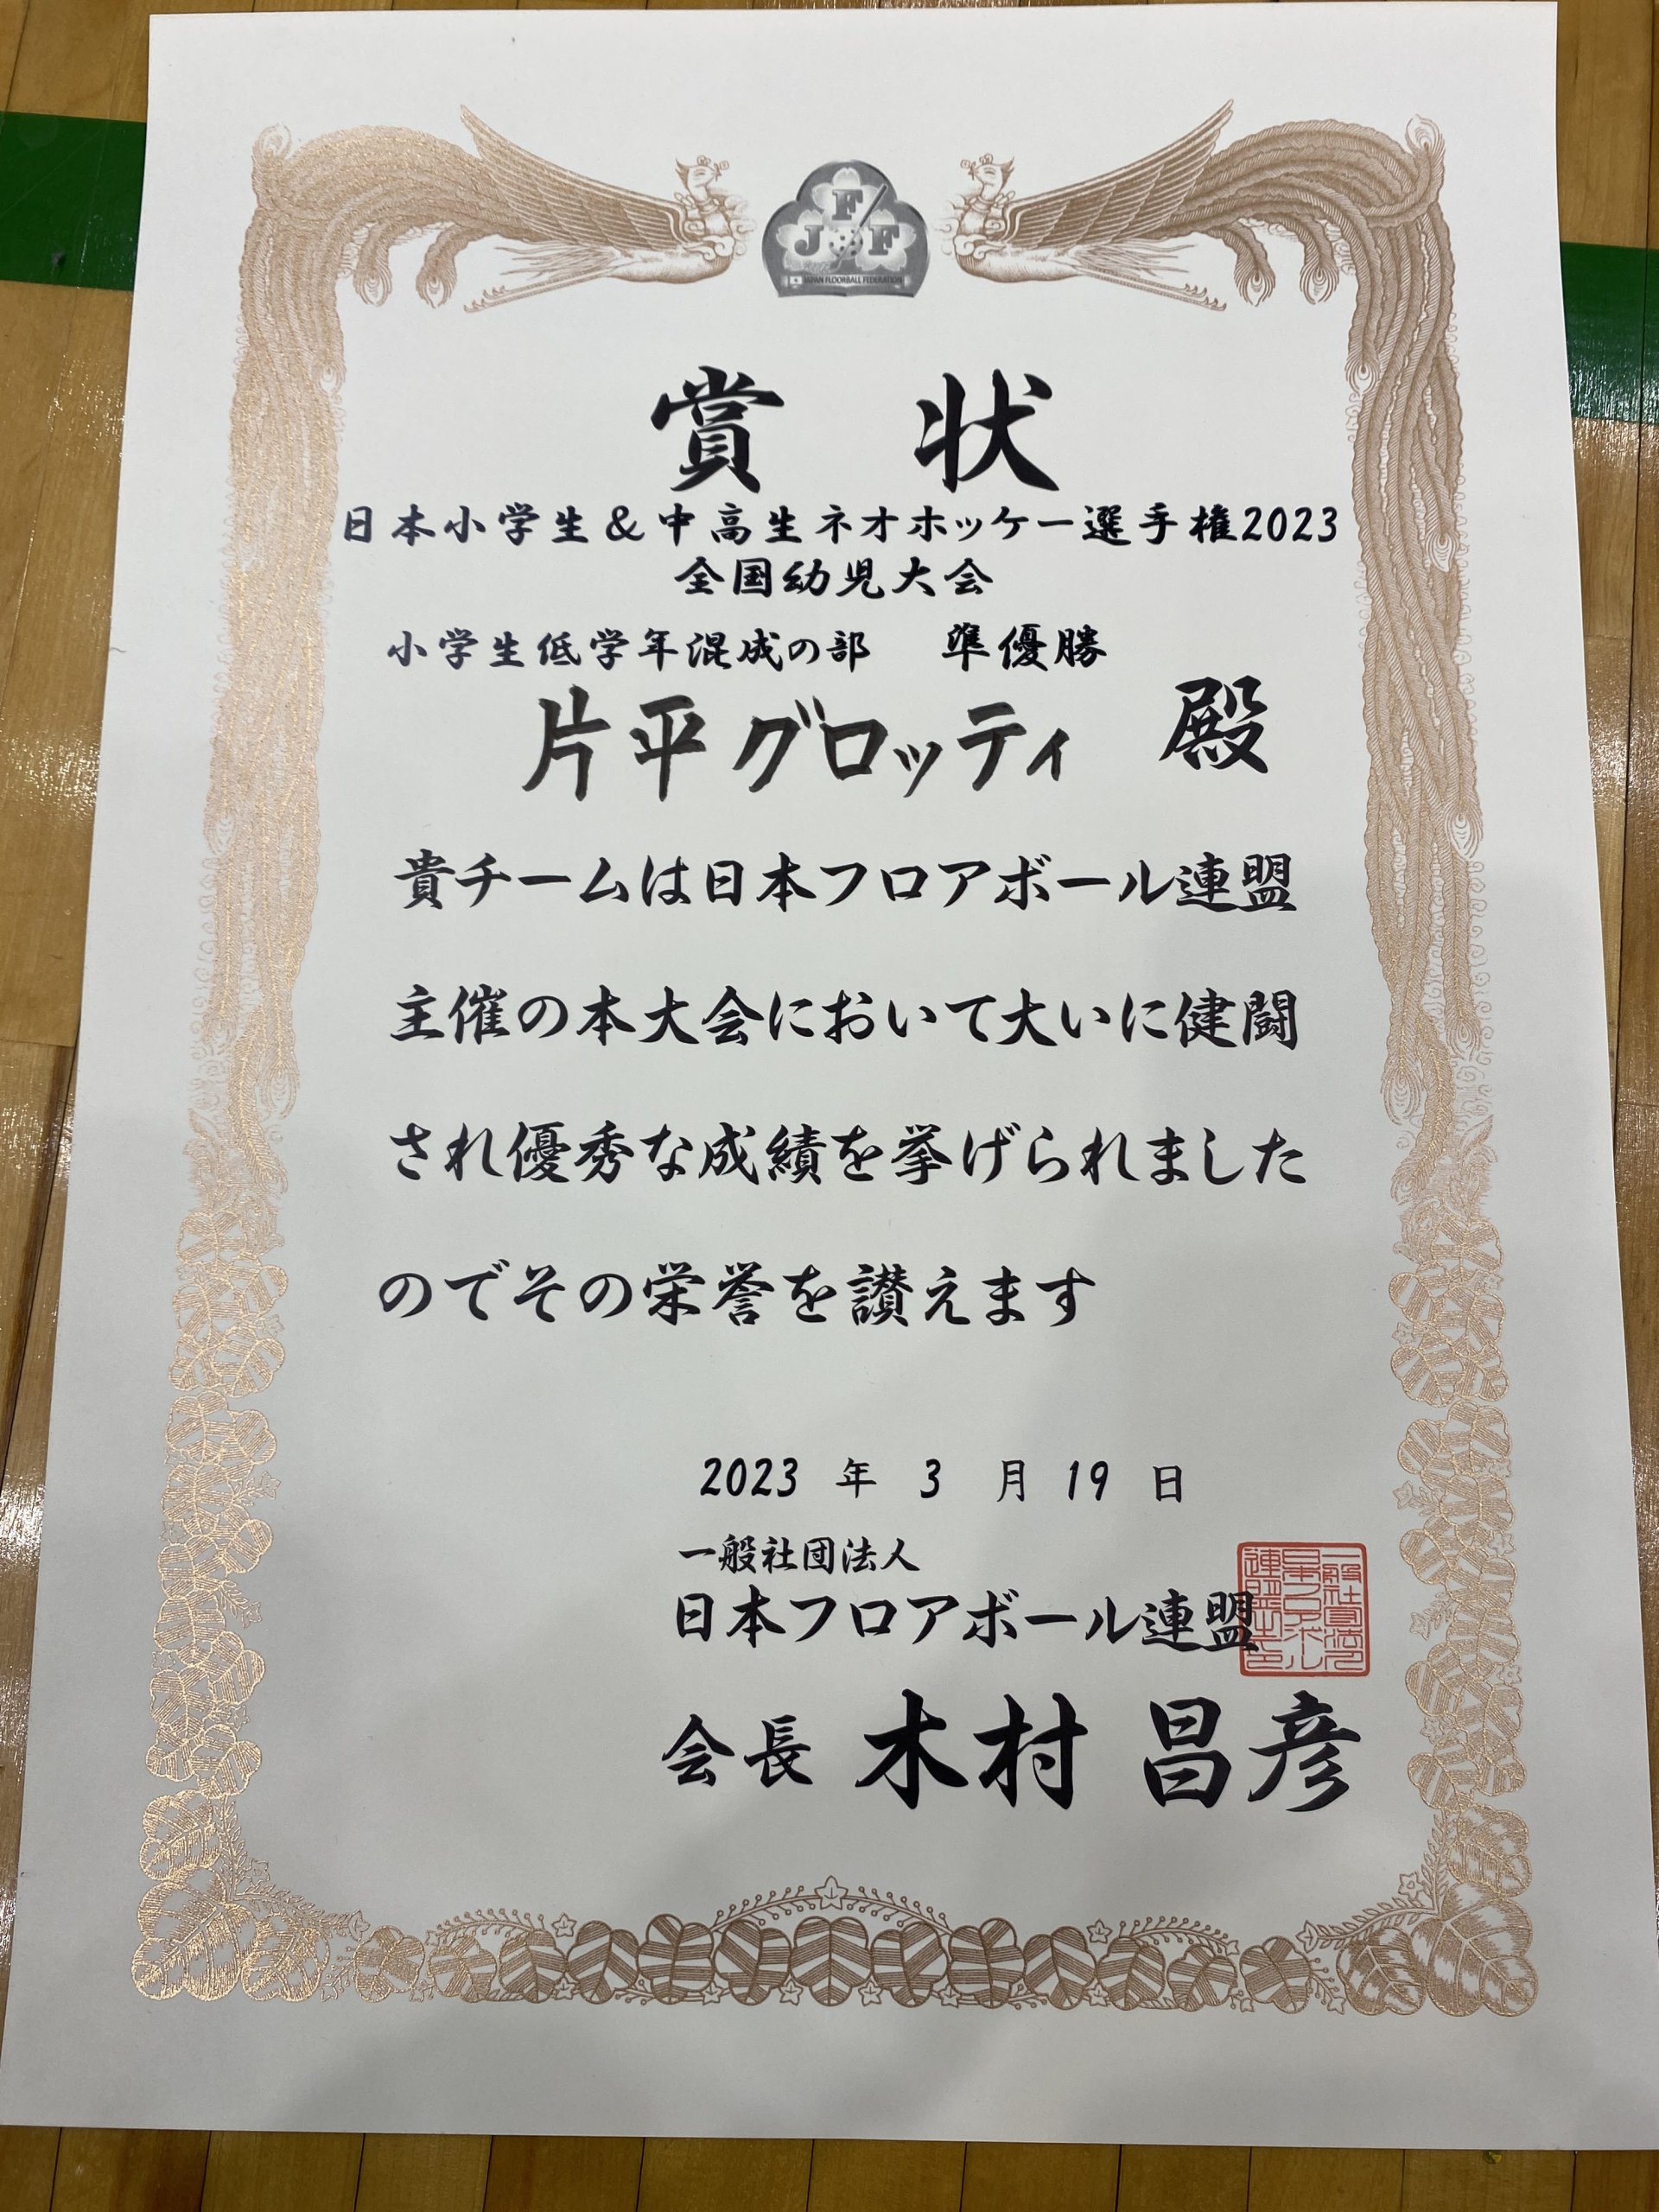 F
J F
JAPAN FLOORBALL FEDERATION
賞 状
日本小学生&中高生ネオホッケー選手権2023
全国幼児大会
小学生低学年混成の部 準優勝
片平グロッティ 殿
貴チームは日本フロアボール連盟
主催の本大会において大いに健闘
され優秀な成績を挙げられました
のでその栄誉を讃えます
2023 年 3 月 19 日
一般社団法人
日本フロアボール連盟
会長 木村 昌彦